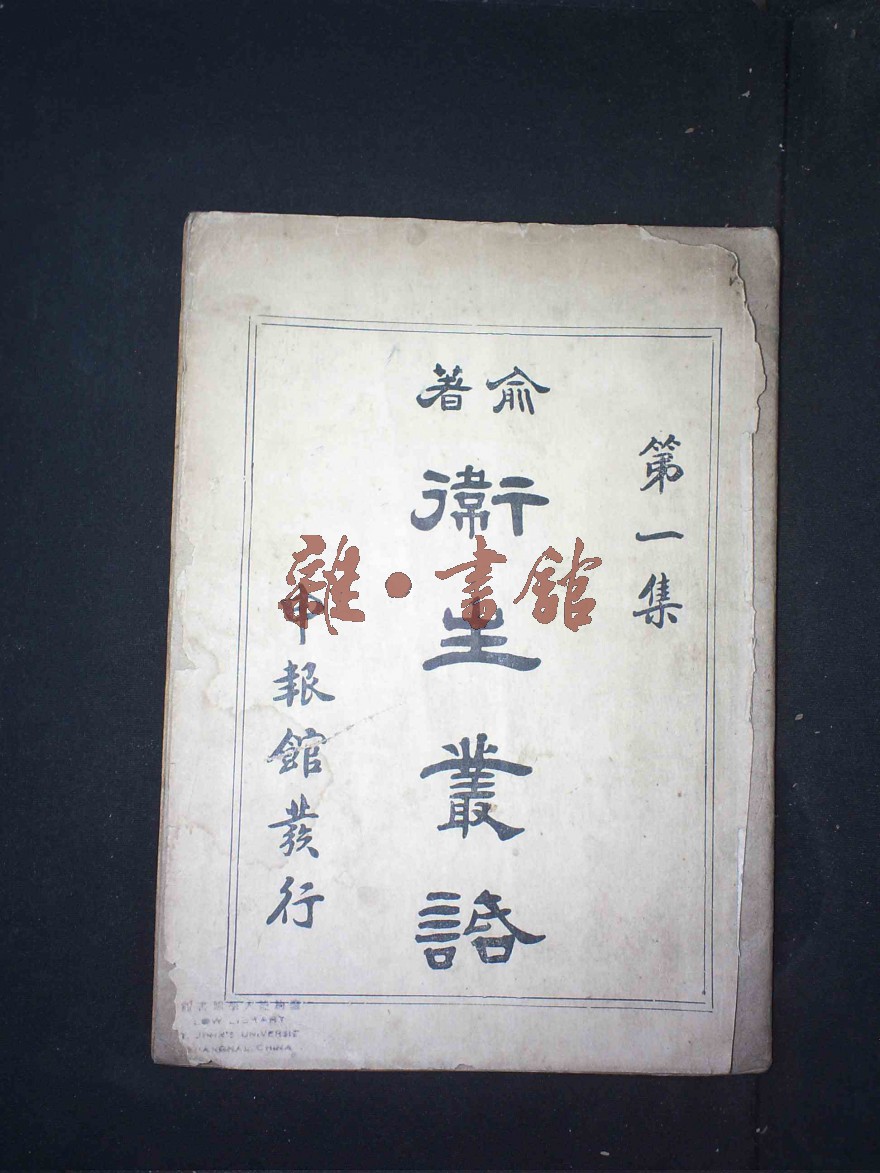 第一集
俞著
衛生叢話
申報館發行
雜·書館
LOW LIBRARY
SHANGHAI, CHINA